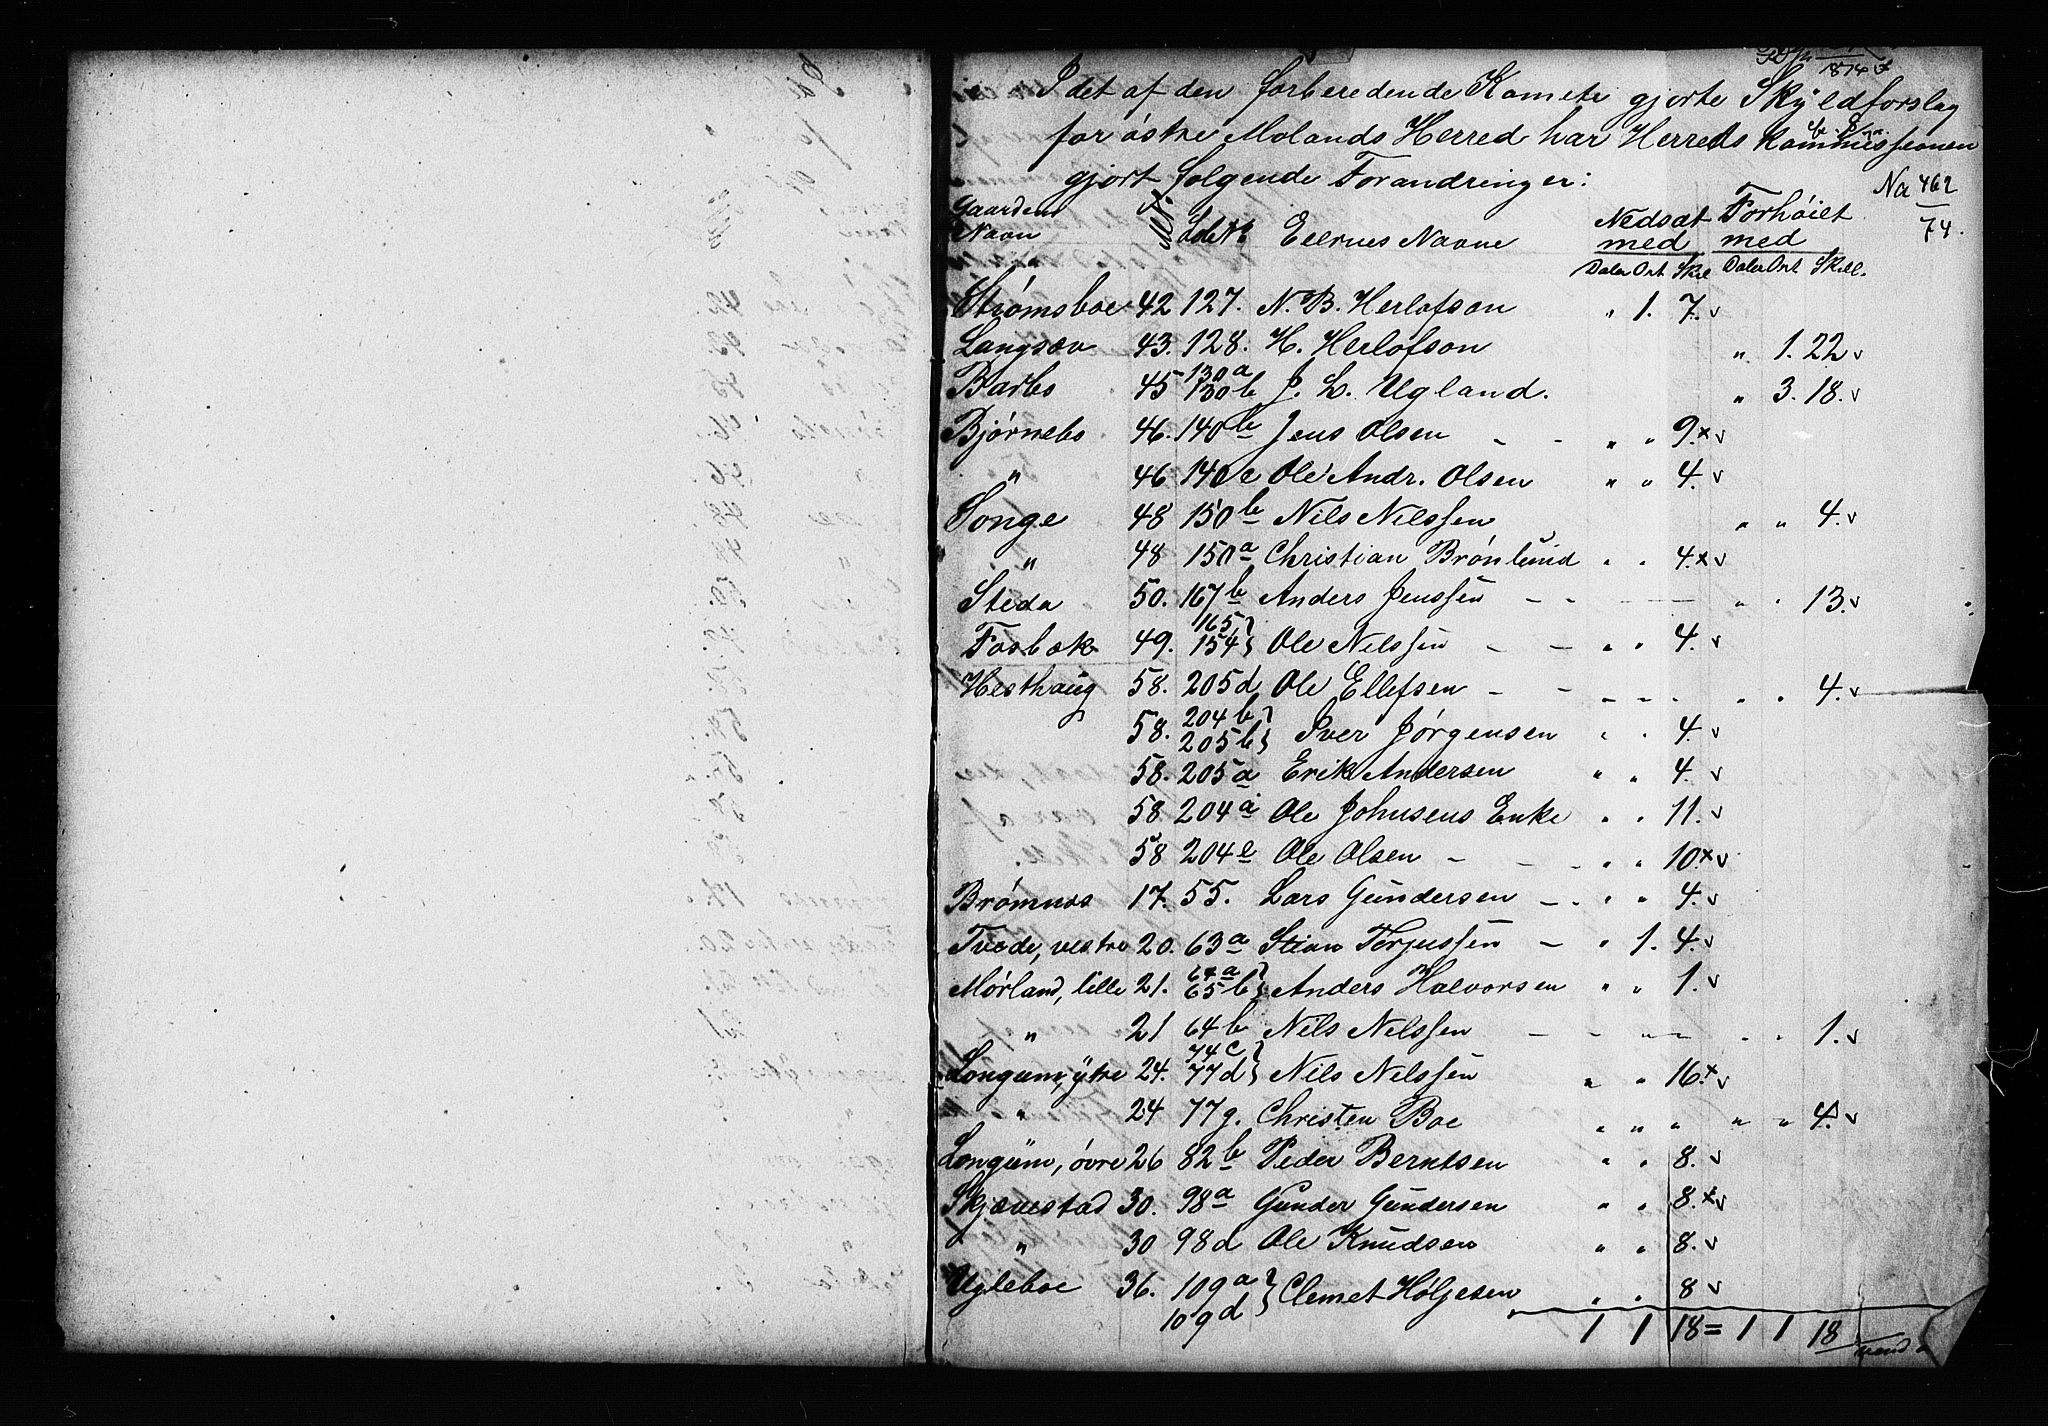 1874
I det af den forberedende Komete gjorte Skÿldforslag
for östre Molands Herred har Herreds Kommissionen
gjort følgende Forandringer:
No 462
74.
Gaardens Navn M.No. Løbe No Eiernes Navne Nedsat med Forhöiet med
Daler Ort Skil Daler Ort Skill.
Strömsboe 42 127. N. B. Herlofson " 1. 7. v
Langsæv 43. 128. H. Herlofson " 1. 22 v
Barbo 45 130a 130b J. L. Ugland. " 3. 18. v
Bjørnebo 46. 140b Jens Olsen - - " " 9. x v
" 46 140c Ole Andr. Olsen " " 4. v
Songe 48 150b Nils Nilssen " " 4. v
" 48 150a Christian Brönlund " " 4. x v
Steda 50. 167b Anders Jenssen - - " " 13. v
Fosbæk 49. 165 154 } Ole Nilssen - - " " 4. v
Hesthaug 58. 205d Ole Ellefsen - - " " 4. v
58. 204b 205b } Iver Jörgensen " " 4. v
58. 205a Erik Andersen " " 4. v
58 204a Ole Johnsens Enke " " 11. v
58 204e Ole Olsen - - - " " 10. x v
Brömnes 17. 55. Lars Gundersen - - " " 4. v
Tvede, vestre 20. 63a Stian Terjussen - " 1. 4. v
Mörland, lille 21. 64a 65b } Anders Halvorsen " " 1. v
" 21 64b Nils Nilssen - - " " 1. v
Longum, ÿtre 24. 74c 77d } Nils Nilssen " " 16. x v
" 24 77g. Christen Boe " " " " " 4. v
Longüm, övre 26 82b Peder Berntsen " " 8. v
Skjævestad 30. 98a Gunder Gundersen " " 8. x v
" 30 98d Ole Knudsen " " 8. v
Ugleboe 36. 109a 109d } Clemet Höljesen " " 8 v
1 1 18 = 1 1 18
vend